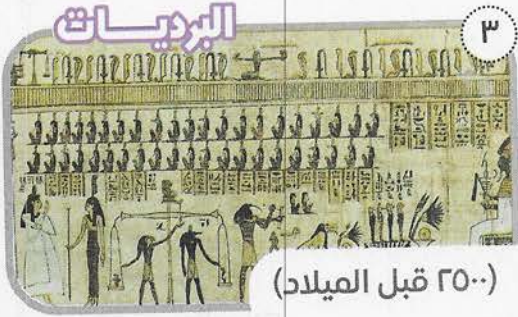 ٣
البرديات
(٢٥٠٠ قبل الميلاد)